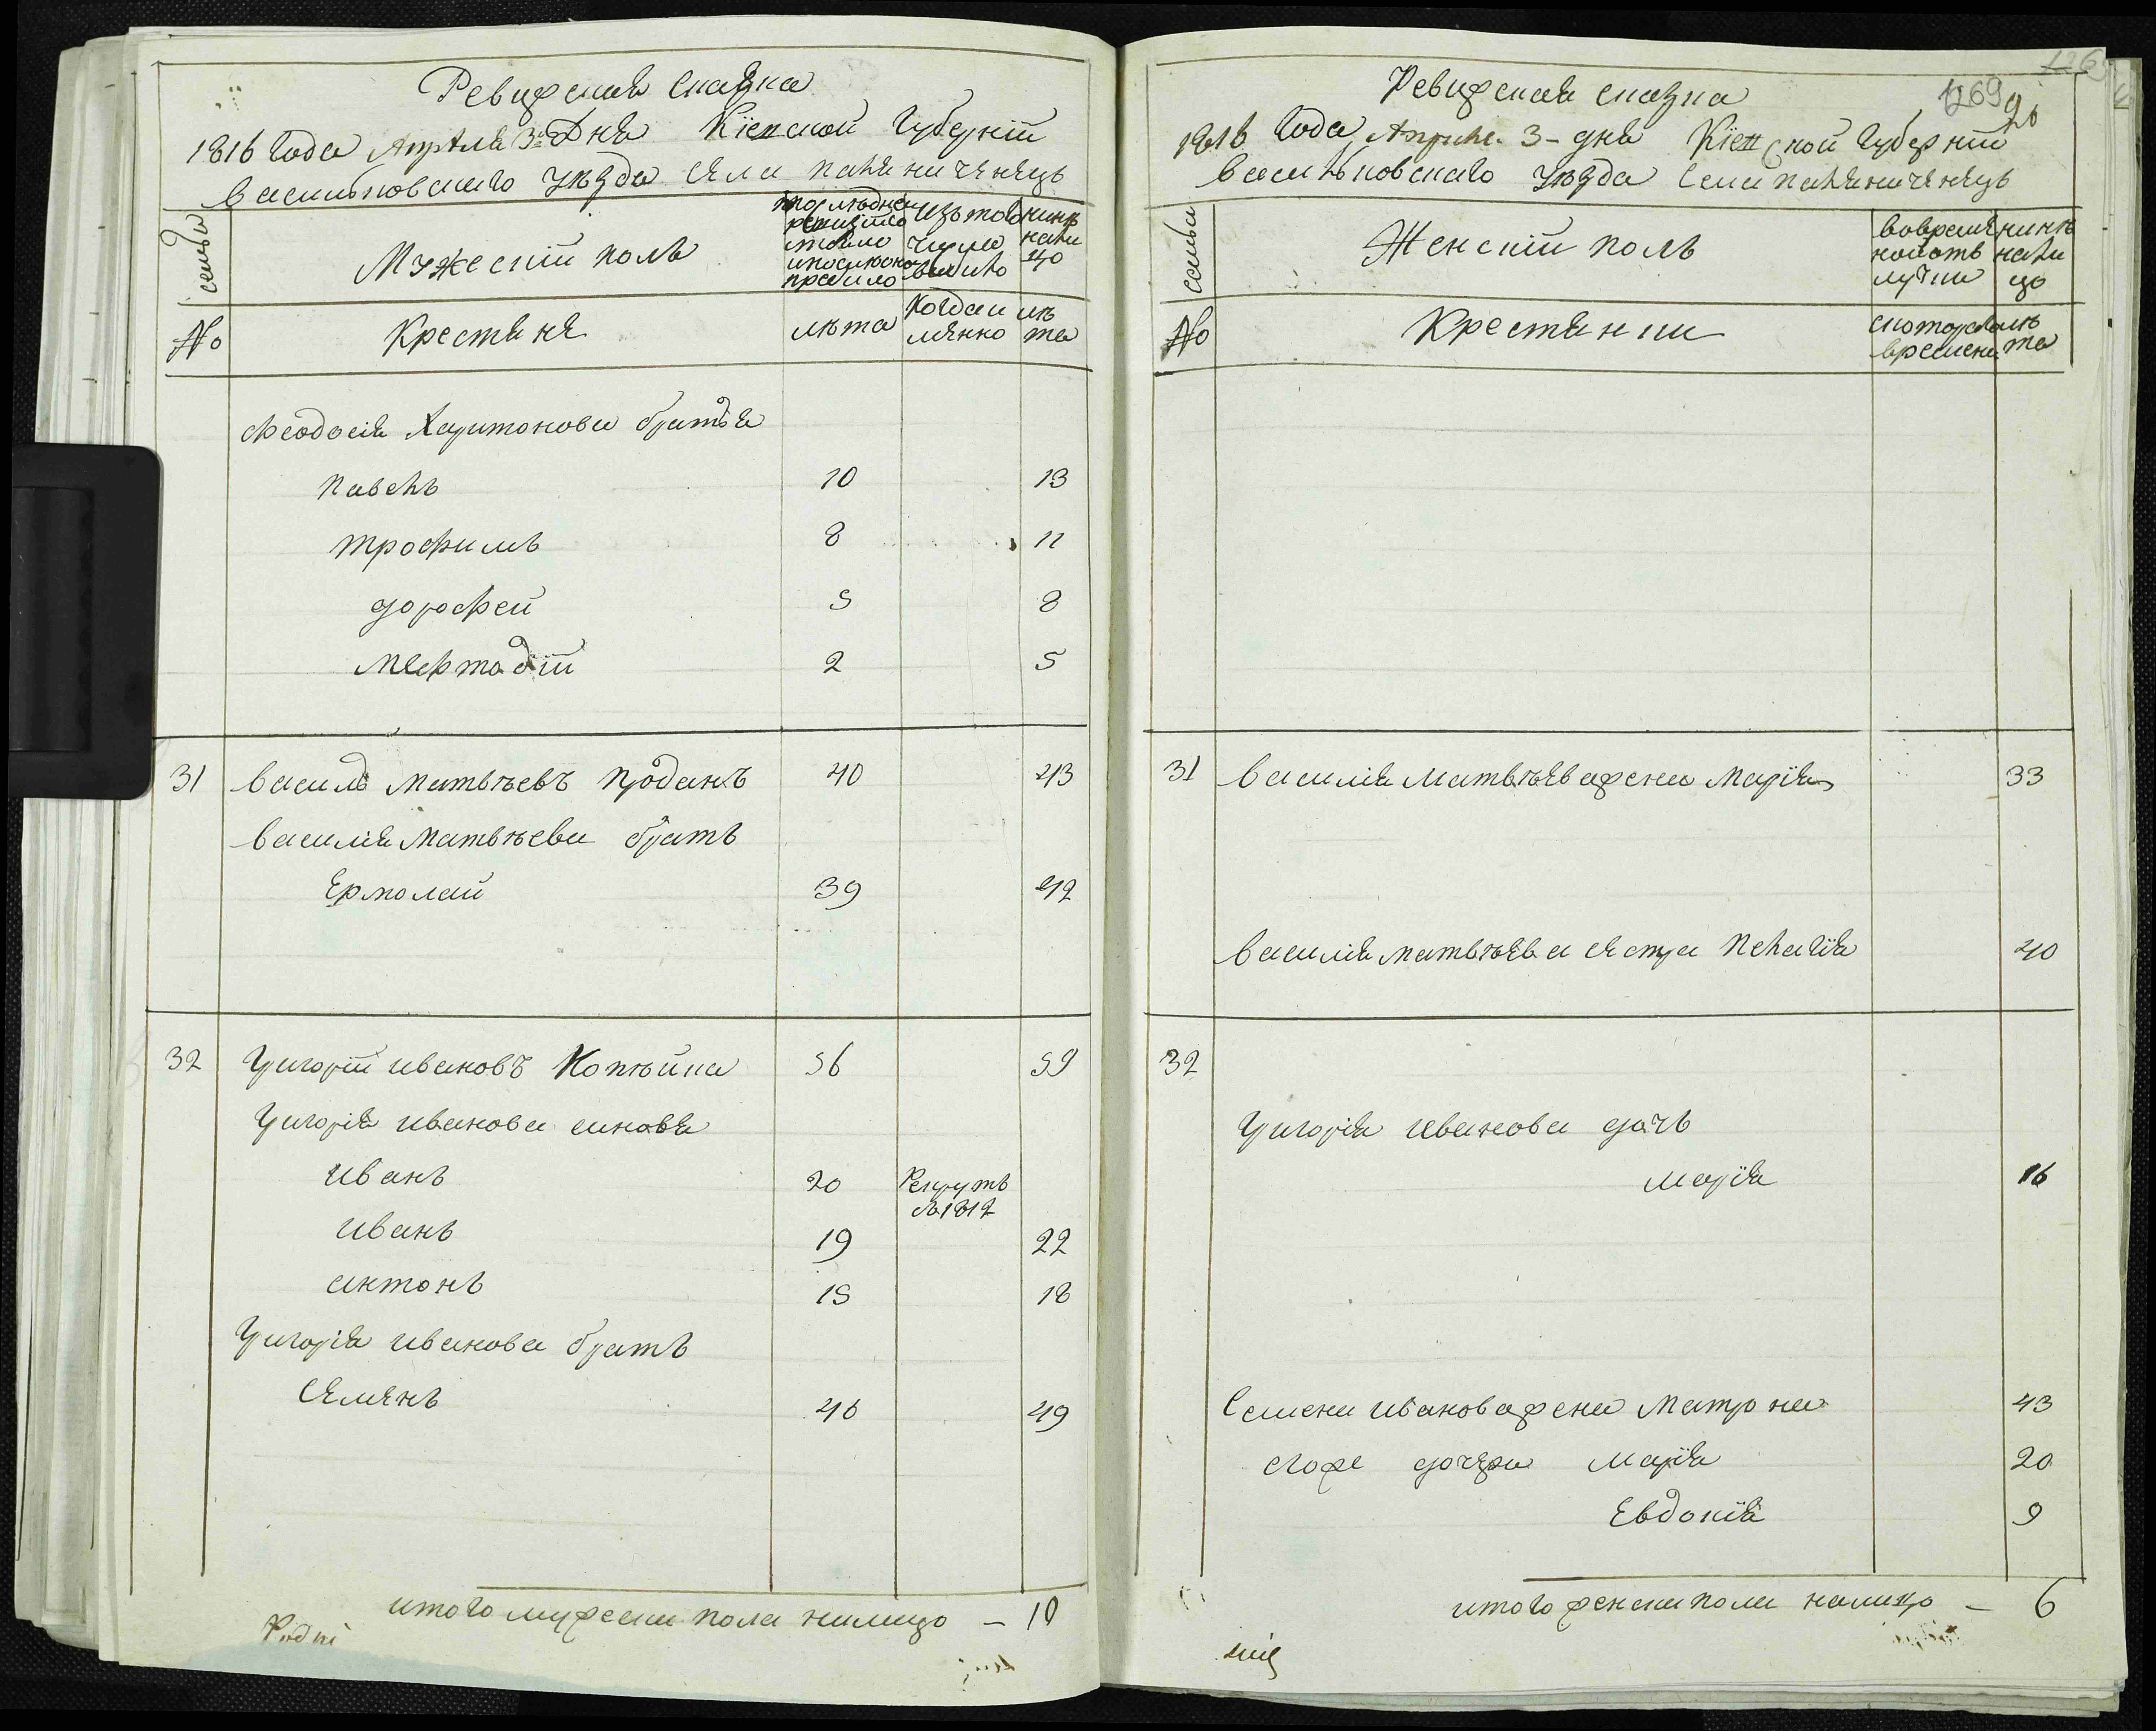 Ревизская сказка
1816 года Апреля 3го Дня Кiевской Губернiи
Васильковскаго уѣзда села палениченецъ
семьи
Мужескiй полъ
по последнеи ревизiи состояло и после оной прибыло
изъ того числа выбыло
нине налицо
No
Крестяне
лѣта
Когда именно
лѣта
Феодосiя Харитонова братья
павелъ 10 13
трофимъ 8 11
дорофей 5 8
Мефтодiй 2 5
31 василь матвѣевъ проданъ 40 43
василiя матвѣева братъ
Ермолай 39 42
32 Григорiй ивановъ Копѣйка 56 59
Григорiя иванова синовя
иванъ 20 Рекрутъ в 1812
иванъ 19 22
антонъ 15 18
Григорiя иванова братъ
Семенъ 46 49
итого мужеска пола налицо – 10
Ревизская сказка
1269
126
96
1816 года Апреля 3- дня Кiевской Губернiи
Васильковскаго уѣзда села палениченецъ
семьи
Женскiй полъ
вовремянной отлучки
нинѣ налицо
No
Крестянки
скоторого времени
лѣта
31 василiя матвѣева жена марiя 33
василiя матвѣева сестра пелагiя 40
32
Григорiя иванова дочь
марiя 16
Семена иванова жена матрона 43
егоже дочери марiя 20
Евдокiя 9
итого женска пола налицо – 6